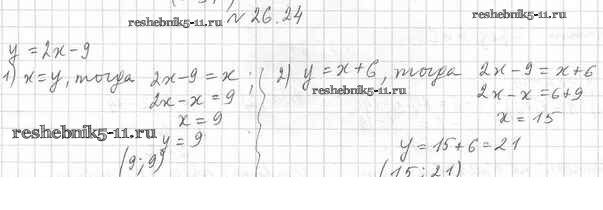 reshebnik5-11.ru № 26.24 reshebnik5-11.ru
y = 2x - 9
1) x = y, тогда 2x - 9 = x ;
2x - x = 9
x = 9
y = 9
(9; 9)
reshebnik5-11.ru
2) y = x + 6, тогда 2x - 9 = x + 6
reshebnik5-11.ru
2x - x = 6 + 9
x = 15
y = 15 + 6 = 21
(15; 21)